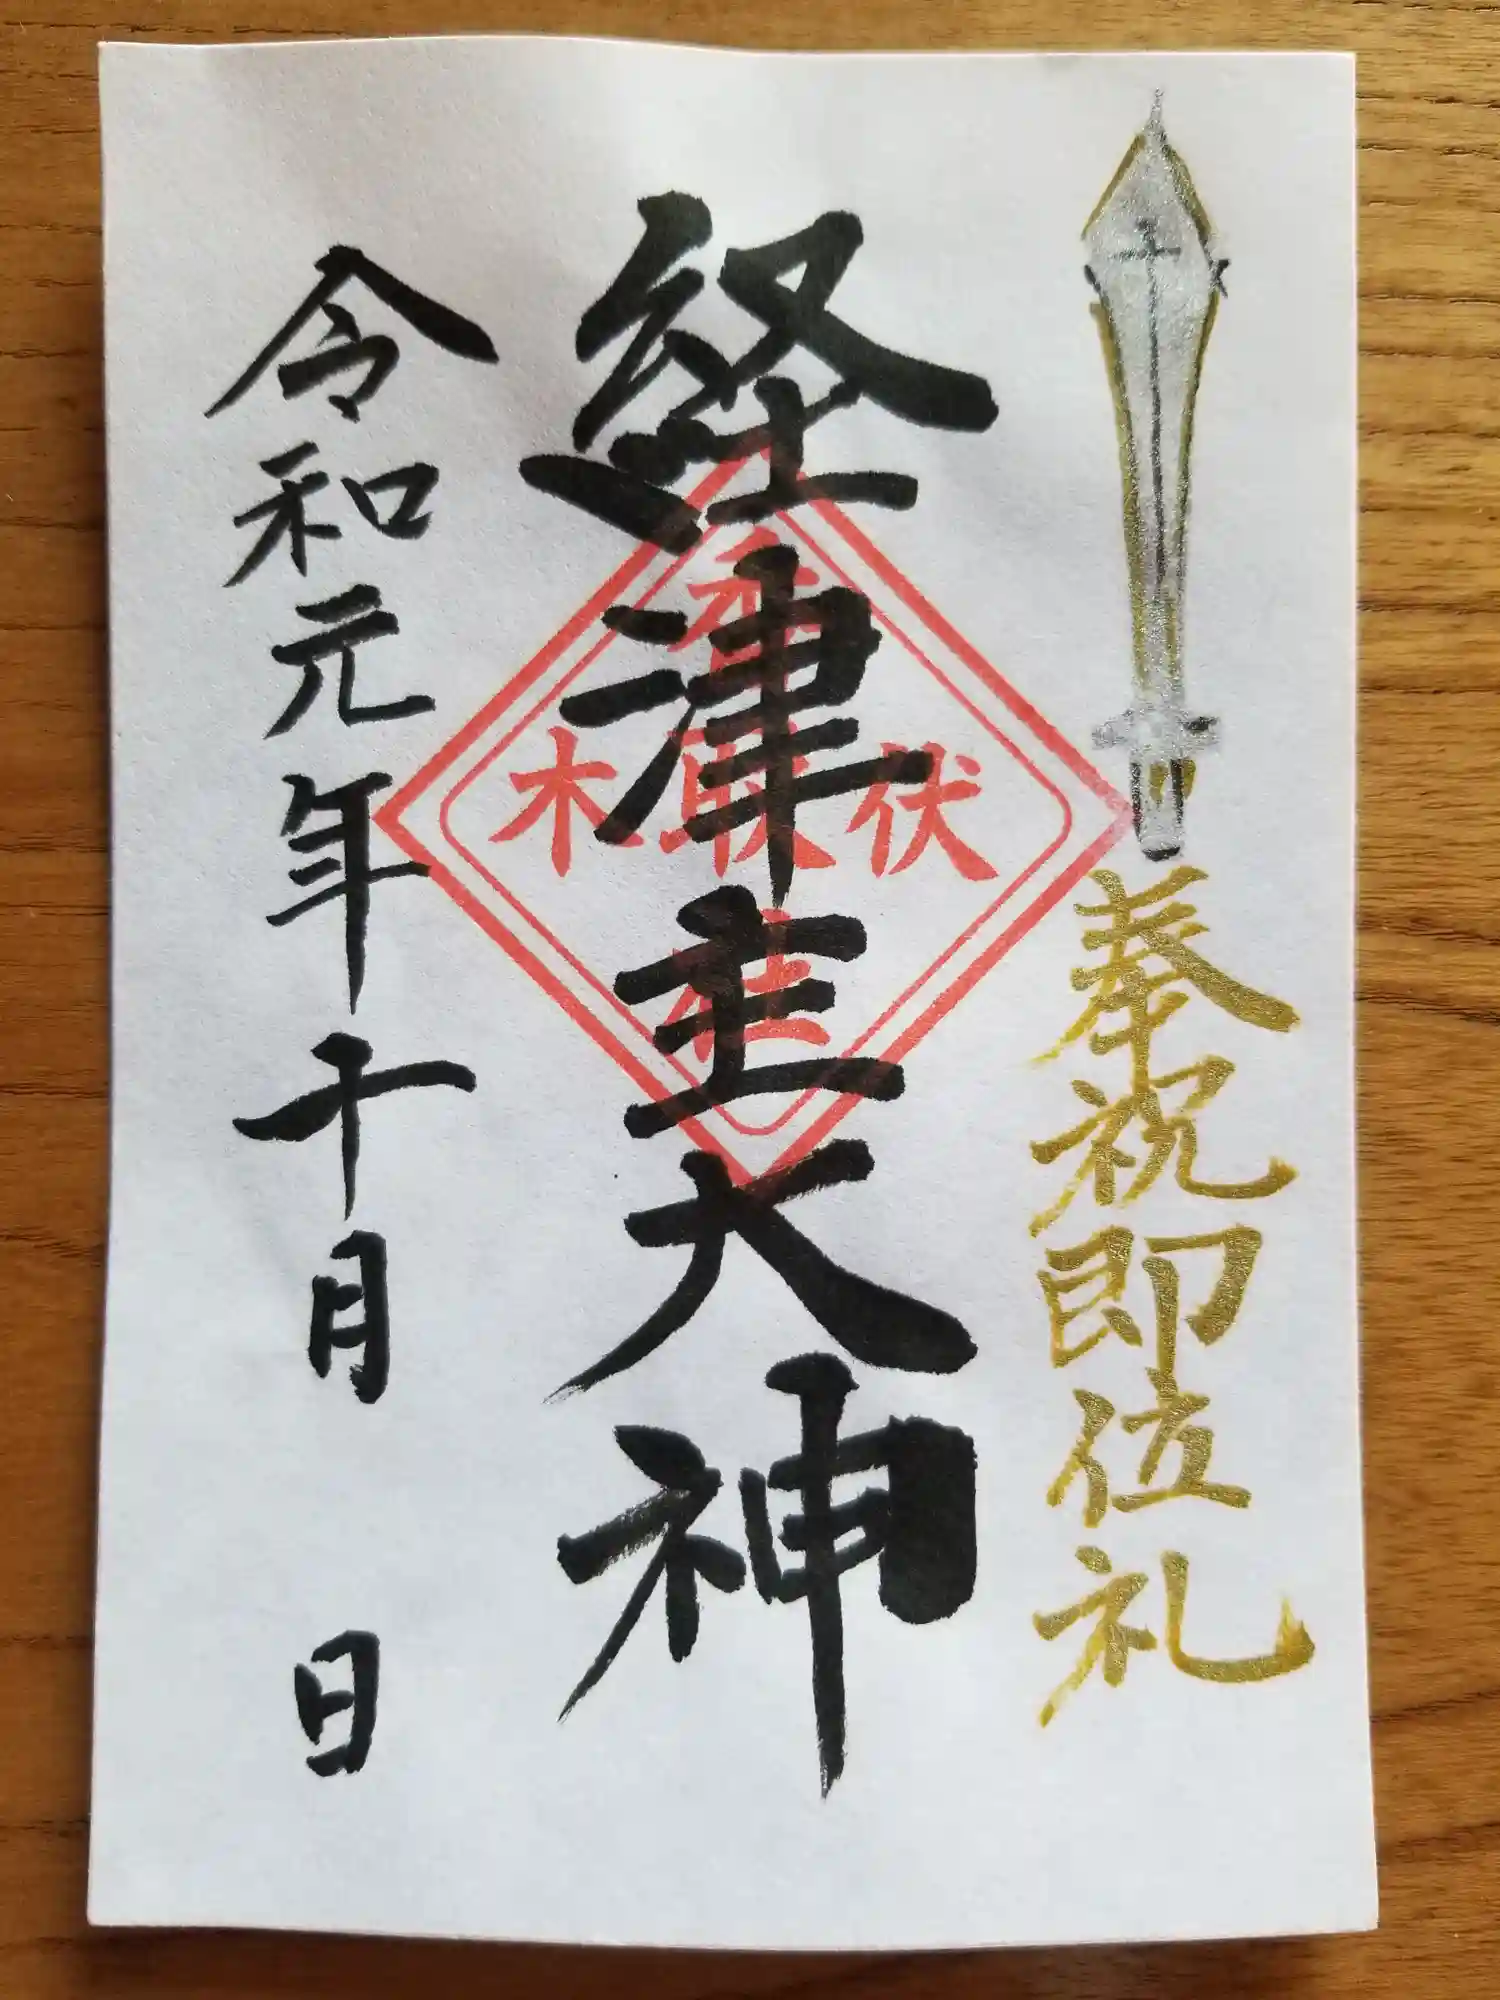 奉祝即位礼
経津主大神
令和元年十月　日
伏
木